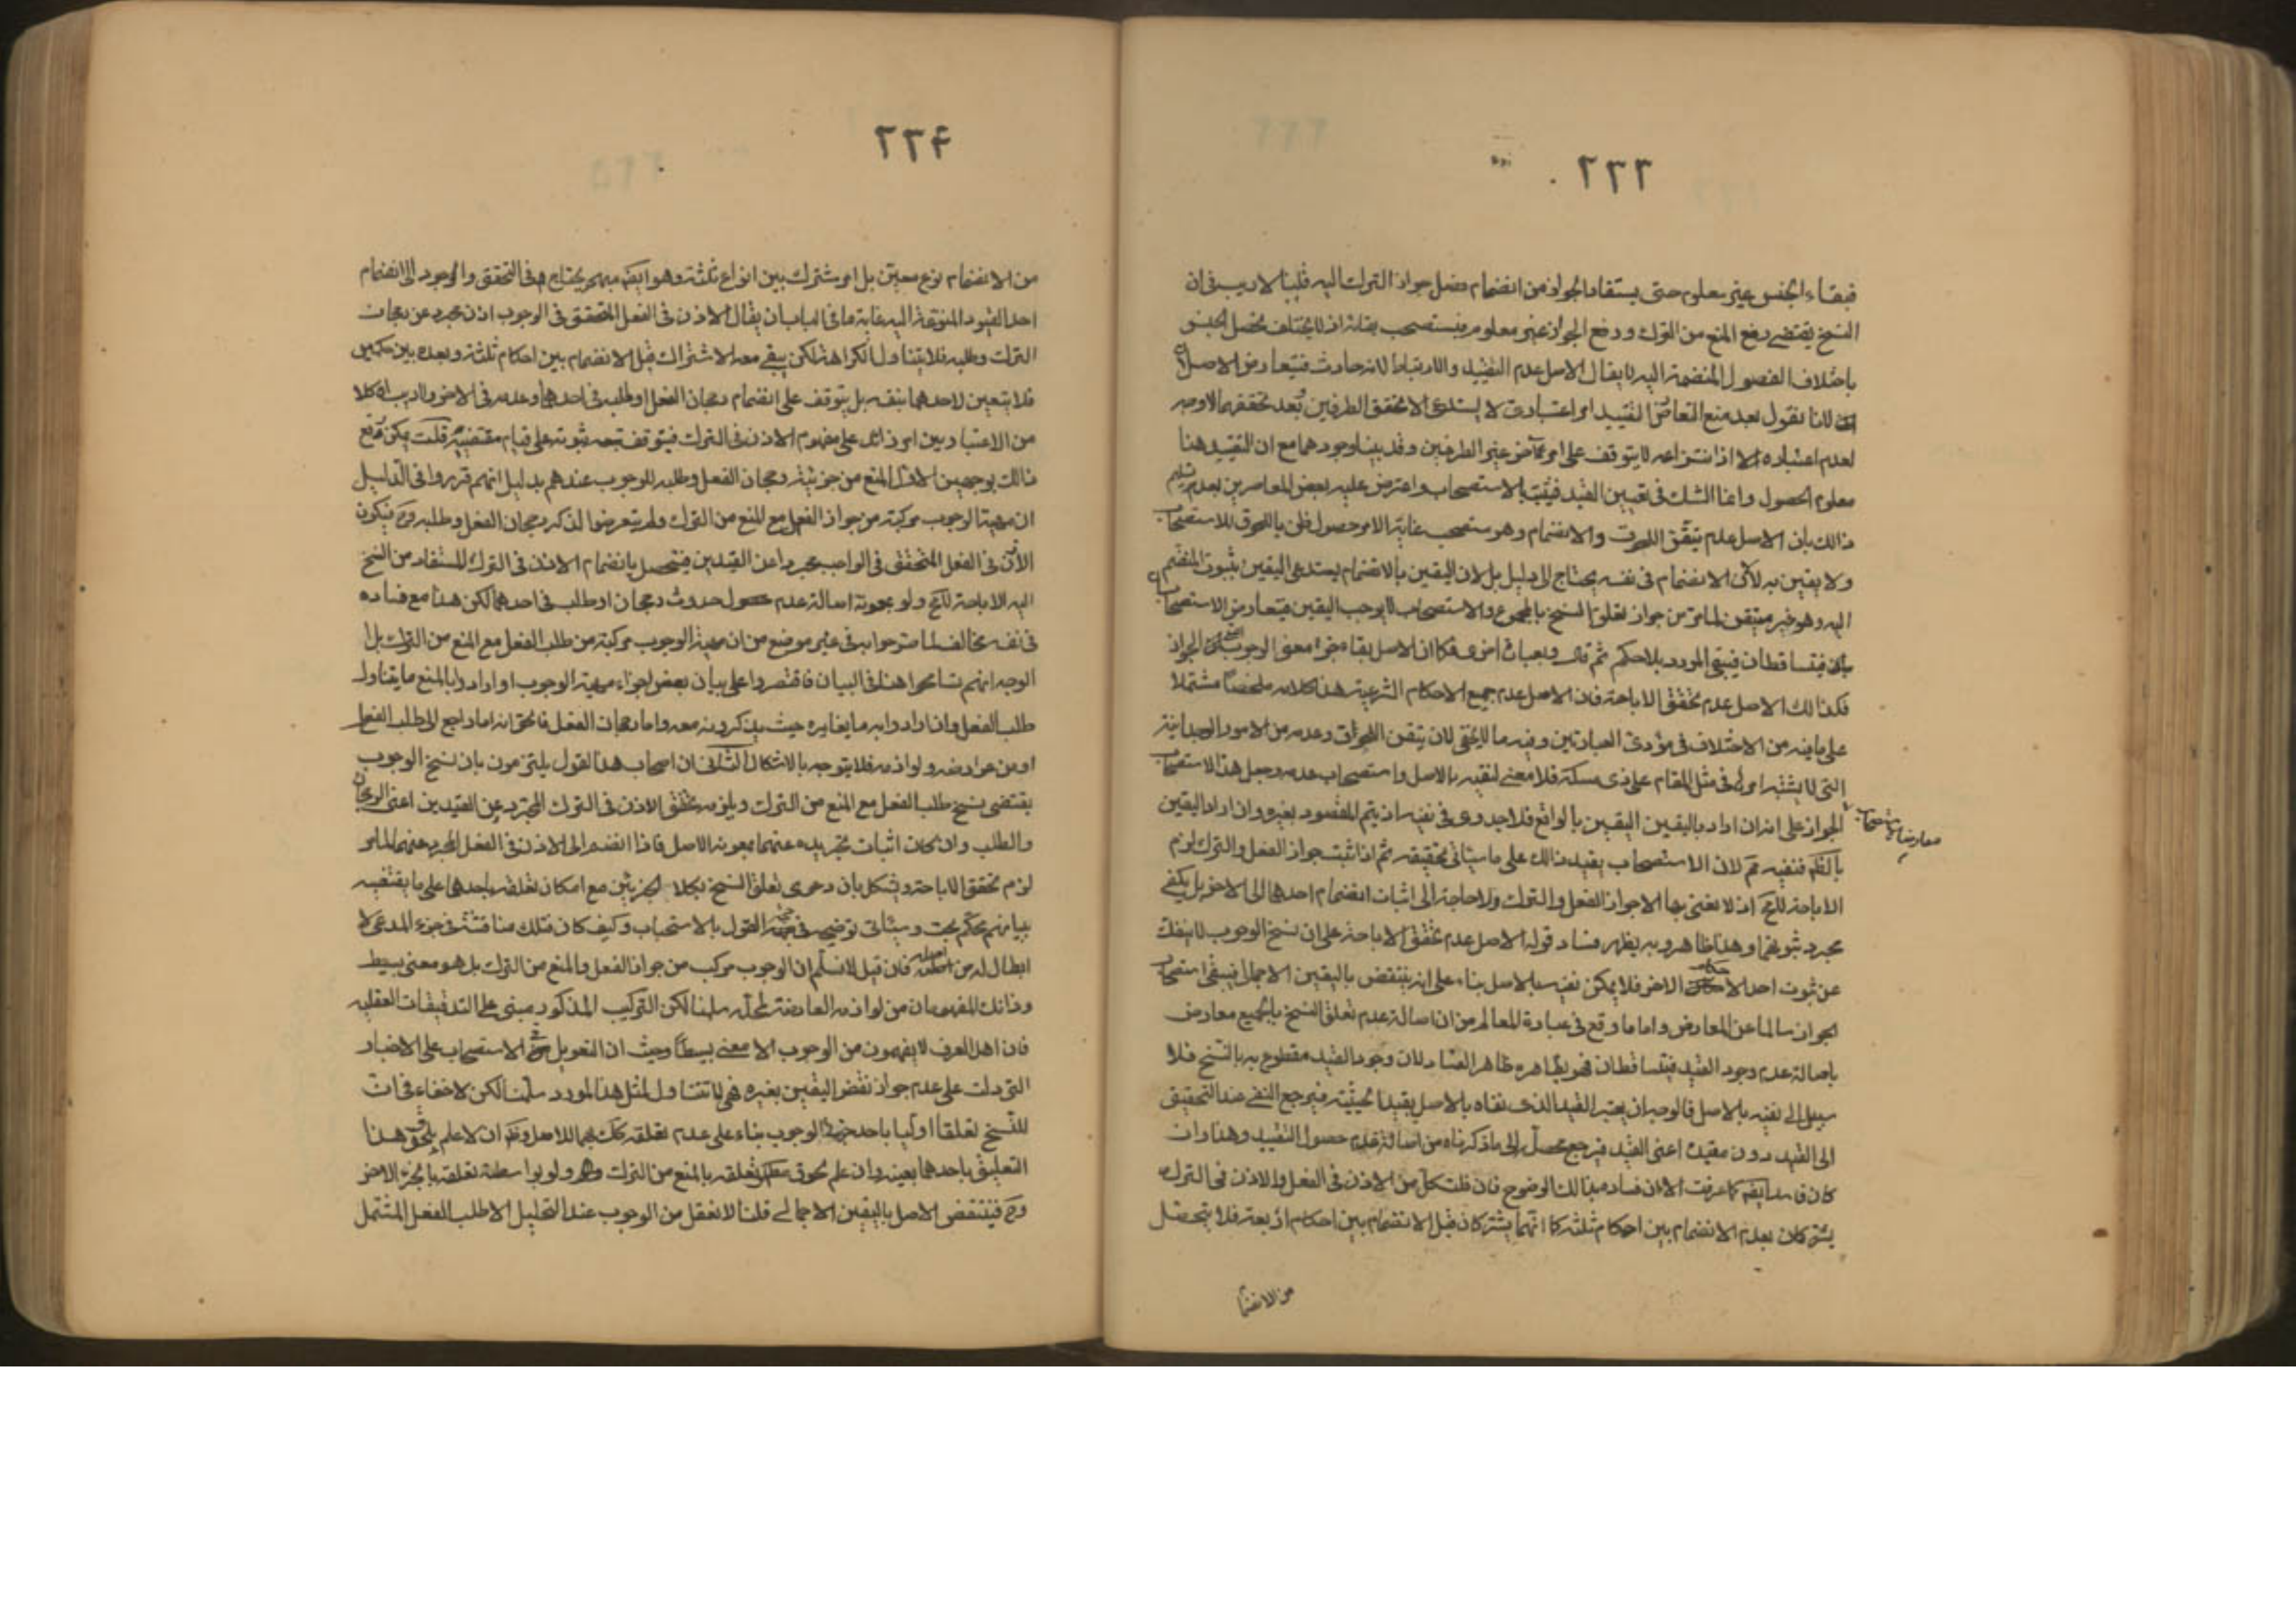 ٢٣٣
فبقاء الجنس غير معلوم حتى يستفاد الجواز من انضمام فصل جواز الترك اليه قلنا لا ريب في ان
النسخ يقتضي رفع المنع من الترك ورفع الجواز غير معلوم فيستصحب بقائه اذ لا يختلف تحصل الجنس
باختلاف الفصول المنضمة اليه لا يقال الاصل عدم التقييد والارتباط لانه حادث فيتعارض الاصلان
لانا نقول بعد منع التعارض التقييد امر اعتباري لا يستدعي الا تحقق الطرفين فبعد تحققهما لا وجه
لعدم اعتباره اذ انتزاعه لا يتوقف على امر آخر غير الطرفين وقد بينا وجودهما مع ان التقييد هنا
معلوم الحصول وانما الشك في تعيين القيد فيثبت بالاستصحاب واعترض عليه بعض المعاصرين بعد تسليم
ذلك بان الاصل عدم تيقن اللحوق والانضمام وهو مستصحب غاية الامر حصول ظن باللحوق للاستصحاب
ولا يقين به لا لان الانضمام في نفسه يحتاج الى دليل بل لان اليقين بالانضمام يستدعي اليقين بثبوت المنضم
اليه وهو غير متيقن لما مر من جواز تعلق النسخ بالمجموع والاستصحاب لا يوجب اليقين فيتعارض الاستصحابان
فيتساقطان فيبقى المورد بلا حكم ثم قال وبعبارة اخرى فكما ان الاصل بقاء جزء معنى الوجوب الجواز
فكذلك الاصل عدم تحقق الاباحة فان الاصل عدم جميع الاحكام الشرعية هذا كلامه ملخصا مشتملا
على ما فيه من الاختلاف في مؤدى العبارتين وفيه ما لا يخفى لان تيقن اللحوق وعدمه من الامور الوجدانية
التي لا يشتبه امرها في مثل المقام على ذي مسكة فلا معنى لنفيه بالاصل واستصحاب عدمه وجعل هذا الاستصحاب
معارضا لاستصحاب
الجواز على انه ان اراد باليقين اليقين بالواقع فلا جدوى في نفيه اذ يتم المقصود بغيره وان اراد اليقين
بالظاهر فنفيه مم لان الاستصحاب يفيد ذلك على ما سيأتي تحقيقه ثم اذا ثبت جواز الفعل والترك لزم
الاباحة اذ لا نعني بها الا جواز الفعل والترك ولا حاجة الى اثبات انضمام احدهما الى الاخر بل يكفي
مجرد ثبوتهما وهذا ظاهر وبه يظهر فساد قوله الاصل عدم تحقق الاباحة على ان نسخ الوجوب لا ينفك
عن ثبوت احد الاحكام الاخر فلا يمكن نفيه بالاصل بناء على انه ينتقض باليقين الاجمالي فيبقى استصحاب
الجواز سالما عن المعارض واما ما وقع في عبارة المعالم من ان اصالة عدم تعلق النسخ بالجميع معارض
باصالة عدم وجود القيد فيتساقطان فهو بظاهره ظاهر الفساد لان وجود القيد مقطوع به بالنسخ فلا
سبيل الى نفيه بالاصل فالوجه ان يعتبر القيد الذي نفاه بالاصل بقيد الحيثية فيرجع النفي عند التحقيق
الى القيد دون مقيده اعني القيد فيرجع محصله الى ما ذكرناه من اصالة عدم حصول التقييد وهذا وان
كان فاسدا ايضا كما عرفت الا ان فساده ليس بذلك الوضوح فان قلت كل من الاذن في الفعل والاذن في الترك
يشتركان بعدم الانضمام بين احكام ثلثة كما انهما يشتركان قبل الانضمام بين احكام اربعة فلا يتحصل
من الانضما
٢٣۴
من الانضمام نوع معين بل امر مشترك بين انواع ثلثة وهو ايضا مبهم يحتاج في التحقق والوجود الى انضمام
احد القيود المنوعة اليه غاية ما في الباب ان يقال الاذن في الفعل المتحقق في الوجوب اذن مجرد عن رجحان
الترك وطلبه فلا يتناول الكراهة لكن يبقى معه الاشتراك قبل الانضمام بين احكام ثلثة وبعده بين حكمين
فلا يتعين لاحدهما بنفسه بل يتوقف على انضمام رجحان الفعل او طلبه في احدهما وعدمه في الاخر ولا ريب ان كلا
من الاعتبارين امر زائد على مفهوم الاذن في الترك فيتوقف ثبوته على قيام مقتضيه قلت يمكن دفع
ذلك بوجهين الاول المنع من جزئية رجحان الفعل وطلبه للوجوب عندهم بدليل انهم قرروا في الدليل
ان مهية الوجوب مركبة من جواز الفعل مع المنع من الترك ولم يتعرضوا لذكر رجحان الفعل وطلبه وح فيكون
الاذن في الفعل المتحقق في الواجب مجردا عن القيدين فيتحصل بانضمام الاذن في الترك المستفاد من النسخ
اليه الاباحة ولو بمعونة اصالة عدم حدوث رجحان او طلب في احدهما لكن هذا مع فساده
في نفسه مخالف لما صرحوا به في غير موضع من ان مهية الوجوب مركبة من طلب الفعل مع المنع من الترك بل
الوجه انهم تسامحوا هنا في البيان فاقتصروا على بيان بعض اجزاء مهية الوجوب او ارادوا بالمنع ما يتناول
طلب الفعل وان ارادوا به ما يغايره حيث يذكرونه معه واما رجحان الفعل فالحق انه اما راجع الى طلب الفعل
او من عوارضه ولوازمه فلا يتوجه به الاشكال الثاني ان اصحاب هذا القول يلتزمون بان نسخ الوجوب
يقتضي نسخ طلب الفعل مع المنع من الترك ويلزمه تحقق الاذن في الترك المجرد عن القيدين اعني الرجحان
والطلب وان كان اثبات تجريده عنهما بمعونة الاصل فاذا انضم الى الاذن في الفعل المجرد عنهما لما مر
لزم تحقق الاباحة ويشكل بان دعوى تعلق النسخ بكلا الجزئين مع امكان تعلقه باحدهما على ما يقتضيه
بيانهم تحكم بحت وسيأتي توضيحه في القول بالاستحباب وكيف كان فتلك مناقشة في جزء المدعى لا
ابطال له من اصله فان قيل لا نسلم ان الوجوب مركب من جواز الفعل والمنع من الترك بل هو معنى بسيط
وذانك المفهومان من لوازمه العارضة لمحله سلمنا لكن التركيب المذكور مبني على التدقيقات العقلية
فان اهل العرف لا يفهمون من الوجوب الا معنى بسيطا وحيث ان التعويل في الاستصحاب على الاخبار
التي دلت على عدم جواز نقض اليقين بغيره فهي لا تتناول لمثل هذا المورد سلمنا لكن لا خفاء في ان
للنسخ تعلقا اوليا باحد جزئي الوجوب بناء على عدم تعلقه بكليهما للاصل وظاهر ان لا علم بلحوق هذا
التعليق باحدهما بعينه وان علم لحوق تعلقه بالمنع من الترك ولو بواسطة تعلقه بالجزء الاخر
وح فينتقض الاصل باليقين الاجمالي قلنا لا نعقل من الوجوب عند التحليل الا طلب الفعل المشتمل